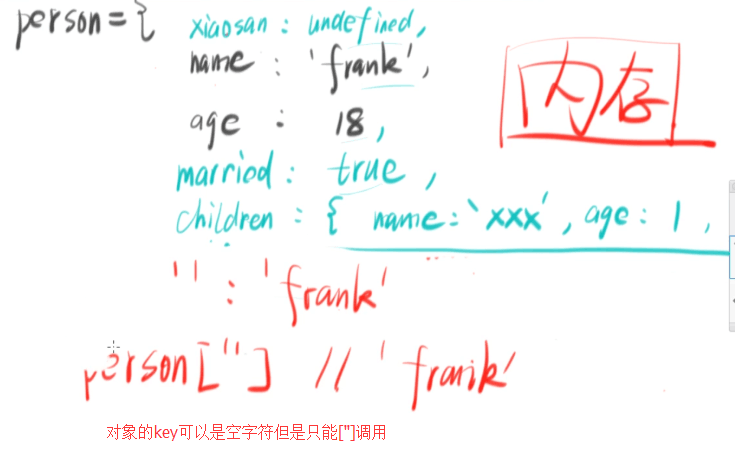 person = { xiaosan : undefined,
name : 'frank',
内存
age : 18,
married : true,
children : { name : 'xxx', age : 1,
'' : 'frank'
person[''] // 'frank'
对象的key可以是空字符但是只能['']调用